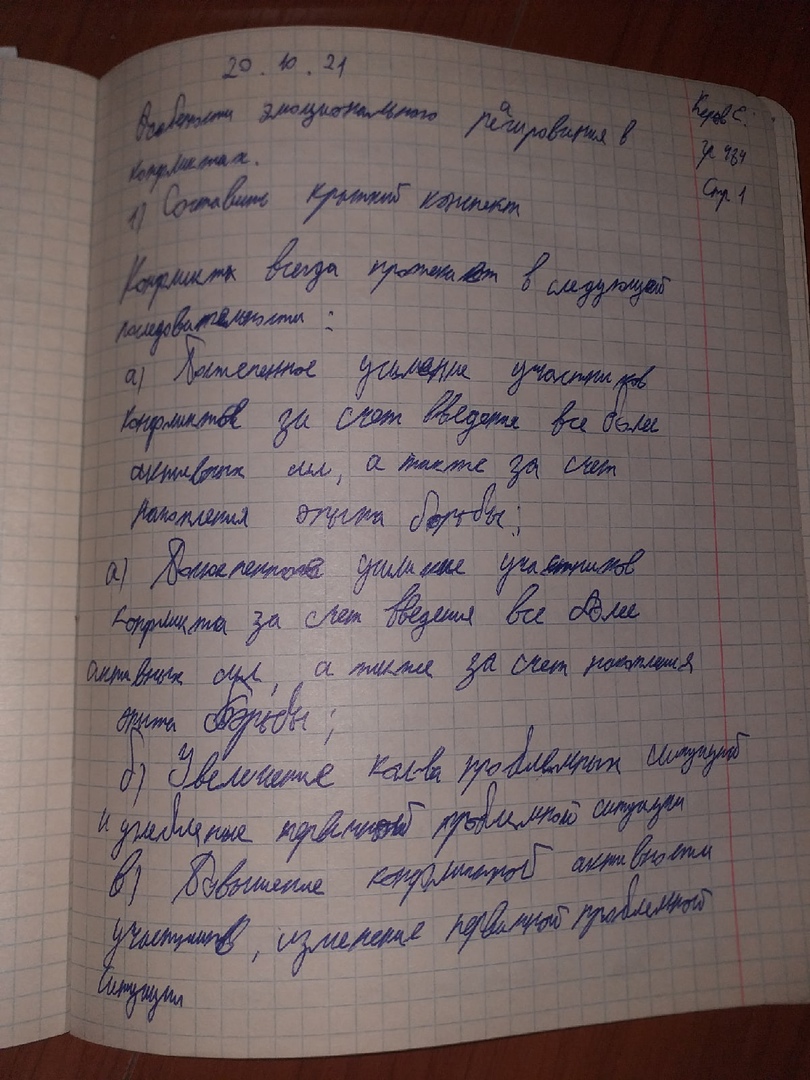 20.10.21
Особенности эмоционального реагирования в
конфликтах.
Керов С.
гр 484
Стр 1
1) Составить краткий конспект
Конфликты всегда протекают в следующей
последовательности:
а) Постепенное усиление участников
конфликтов за счет введения все более
активных сил, а также за счет
накопления опыта борьбы;
а) Постепенное усиление участников
конфликта за счет введения все более
активных сил, а также за счет накопления
опыта борьбы;
б) Увеличение кол-ва проблемных ситуаций
и углебление первичной проблемной ситуации
в) Повышение конфликтной активности
участников, изменение первичной проблемной
ситуации